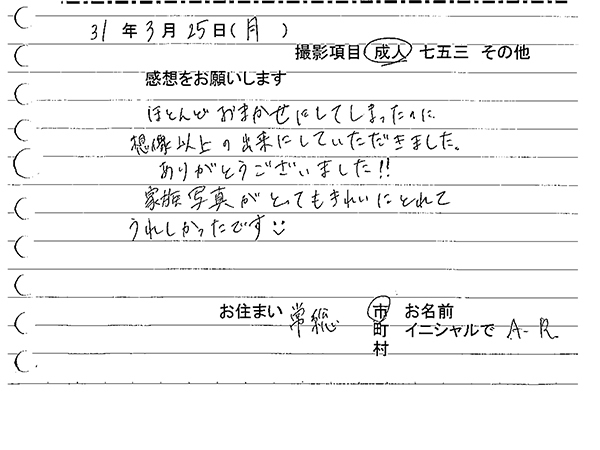 31 年 3 月 25 日 ( 月 )
撮影項目 成人 七五三 その他
感想をお願いします
ほとんどおまかせにしてしまったのに
想像以上の出来にしていただきました。
ありがとうございました!!
家族写真がとってもきれいにとれて
うれしかったです
お住まい 常総 市 お名前
町 イニシャルで A-R
村